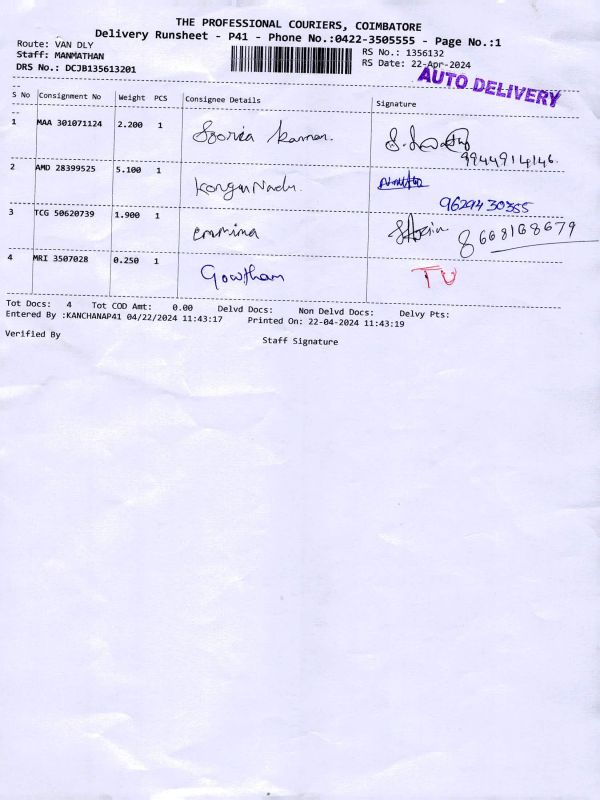 THE PROFESSIONAL COURIERS, COIMBATORE
Delivery Runsheet - P41 - Phone No.:0422-3505555 - Page No.:1
Route: VAN DLY
Staff: MANMATHAN
DRS No.: DCJB135613201
RS No.: 1356132
RS Date: 22-Apr-2024
AUTO DELIVERY
S No Consignment No Weight PCS Consignee Details Signature
1 MAA 301071124 2.200 1 Sooria Kannan.
9944914146.
2 AMD 28399525 5.100 1 KonguNadu.
9629430355
3 TCG 50620739 1.900 1 emmima
8668168679
4 MRI 3507028 0.250 1 Gowtham TU
Tot Docs: 4 Tot COD Amt: 0.00 Delvd Docs: Non Delvd Docs: Delvy Pts:
Entered By :KANCHANAP41 04/22/2024 11:43:17 Printed On: 22-04-2024 11:43:19
Verified By Staff Signature